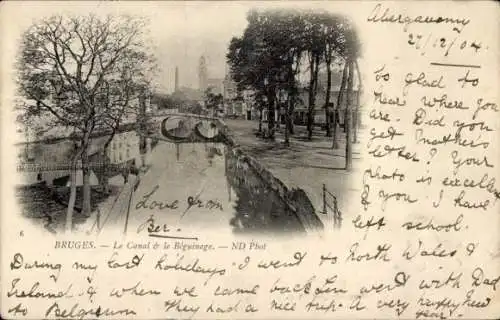 Abergavenny
27/12/04
So glad to
hear where you
are. Did you
get Mother's
letter. Your
photo is excellent
of you. I have
left school.
Love from
Ber.
6
BRUGES. — Le Canal & le Béguinage. — ND Phot
During my last holidays I went to North Wales &
Ireland, & when we came back Ken went with Dad
to Belgium. They had a nice trip, & a very
year.